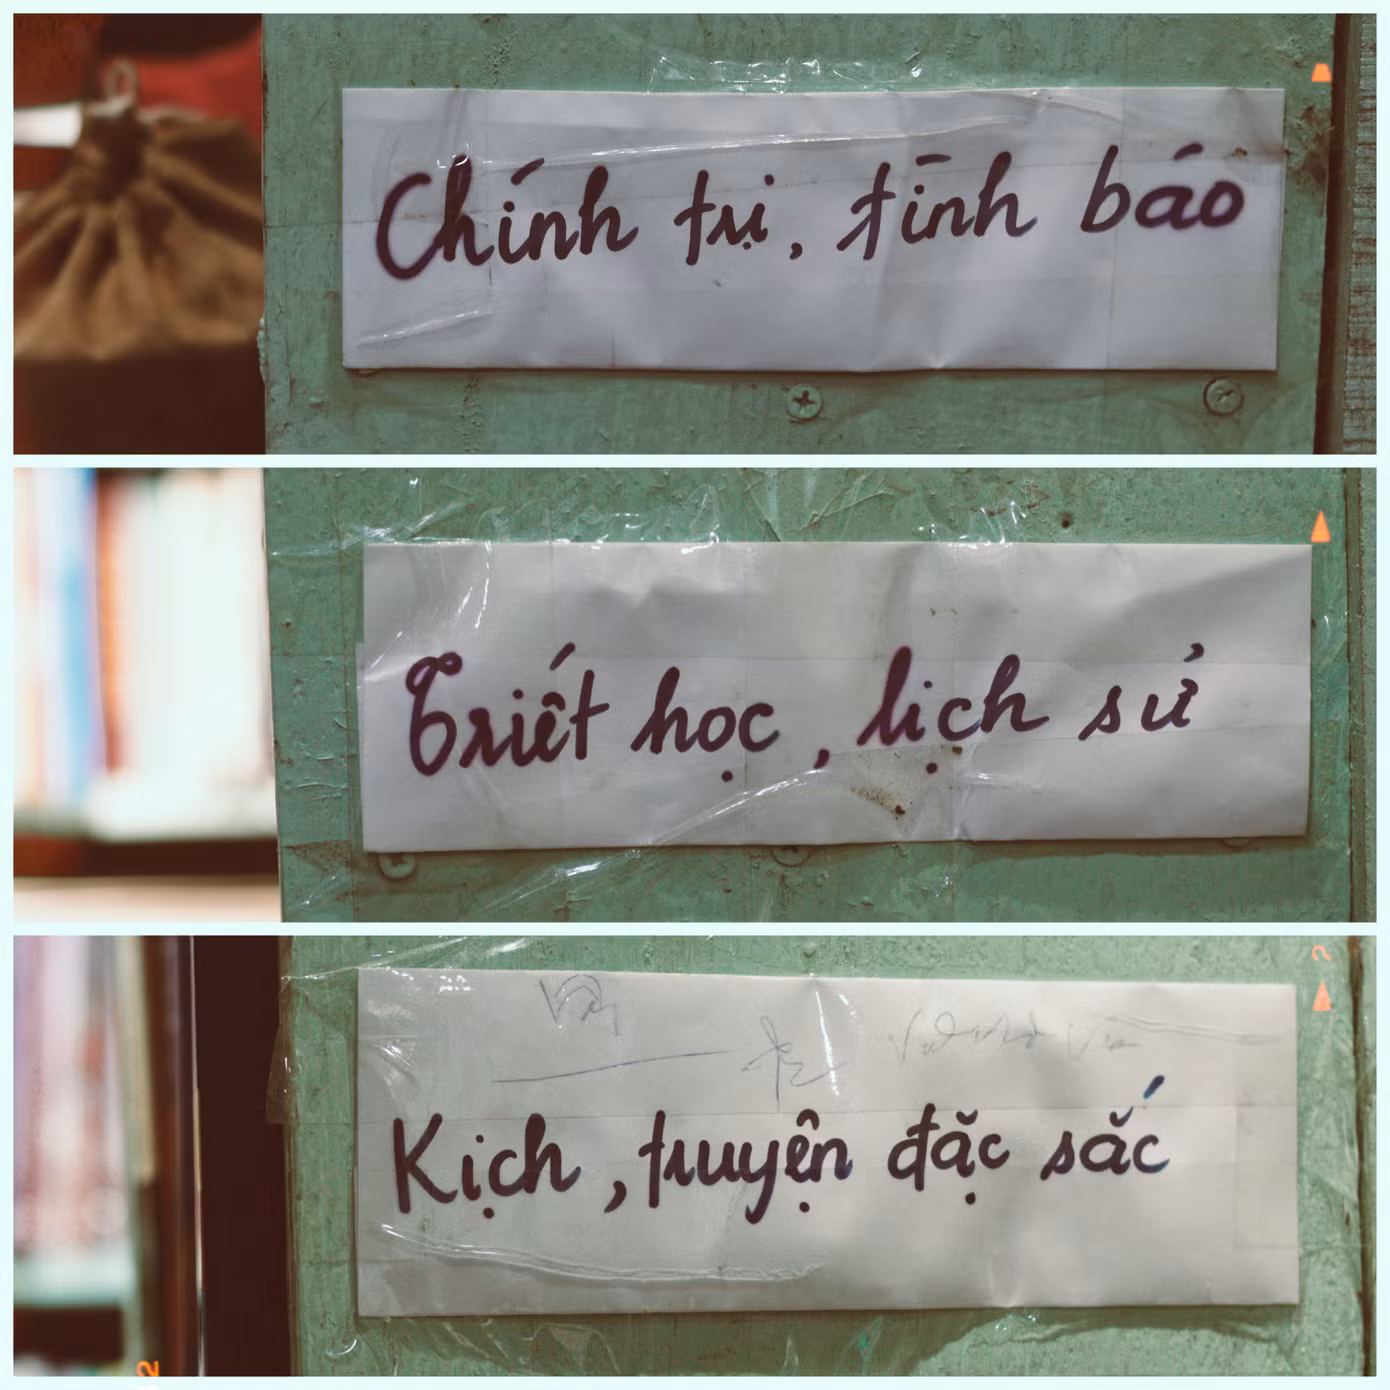 Chính trị, tình báo
Triết học, lịch sử
Kịch, truyện đặc sắc
2
2